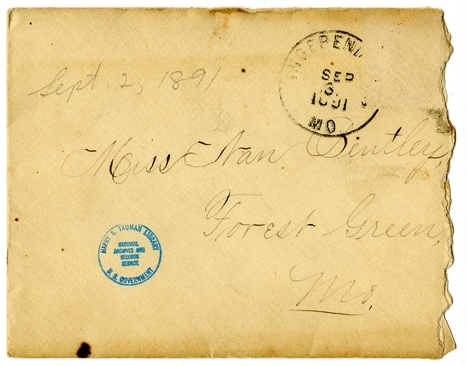 Sept. 2, 1891
INDEPEND
SEP
3
1891
MO
Miss Nan Bentley,
Forest Green,
Mo.
HARRY S. TRUMAN LIBRARY
NATIONAL
ARCHIVES AND
RECORDS
SERVICE
U. S. GOVERNMENT